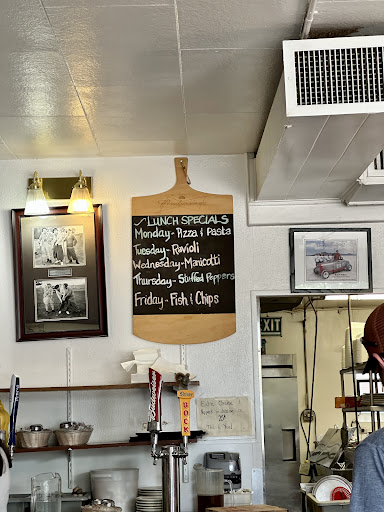 LUNCH SPECIALS
Monday - Pizza & Pasta
Tuesday - Ravioli
Wednesday - Manicotti
Thursday - Stuffed Peppers
Friday - Fish & Chips
EXIT
BOCK